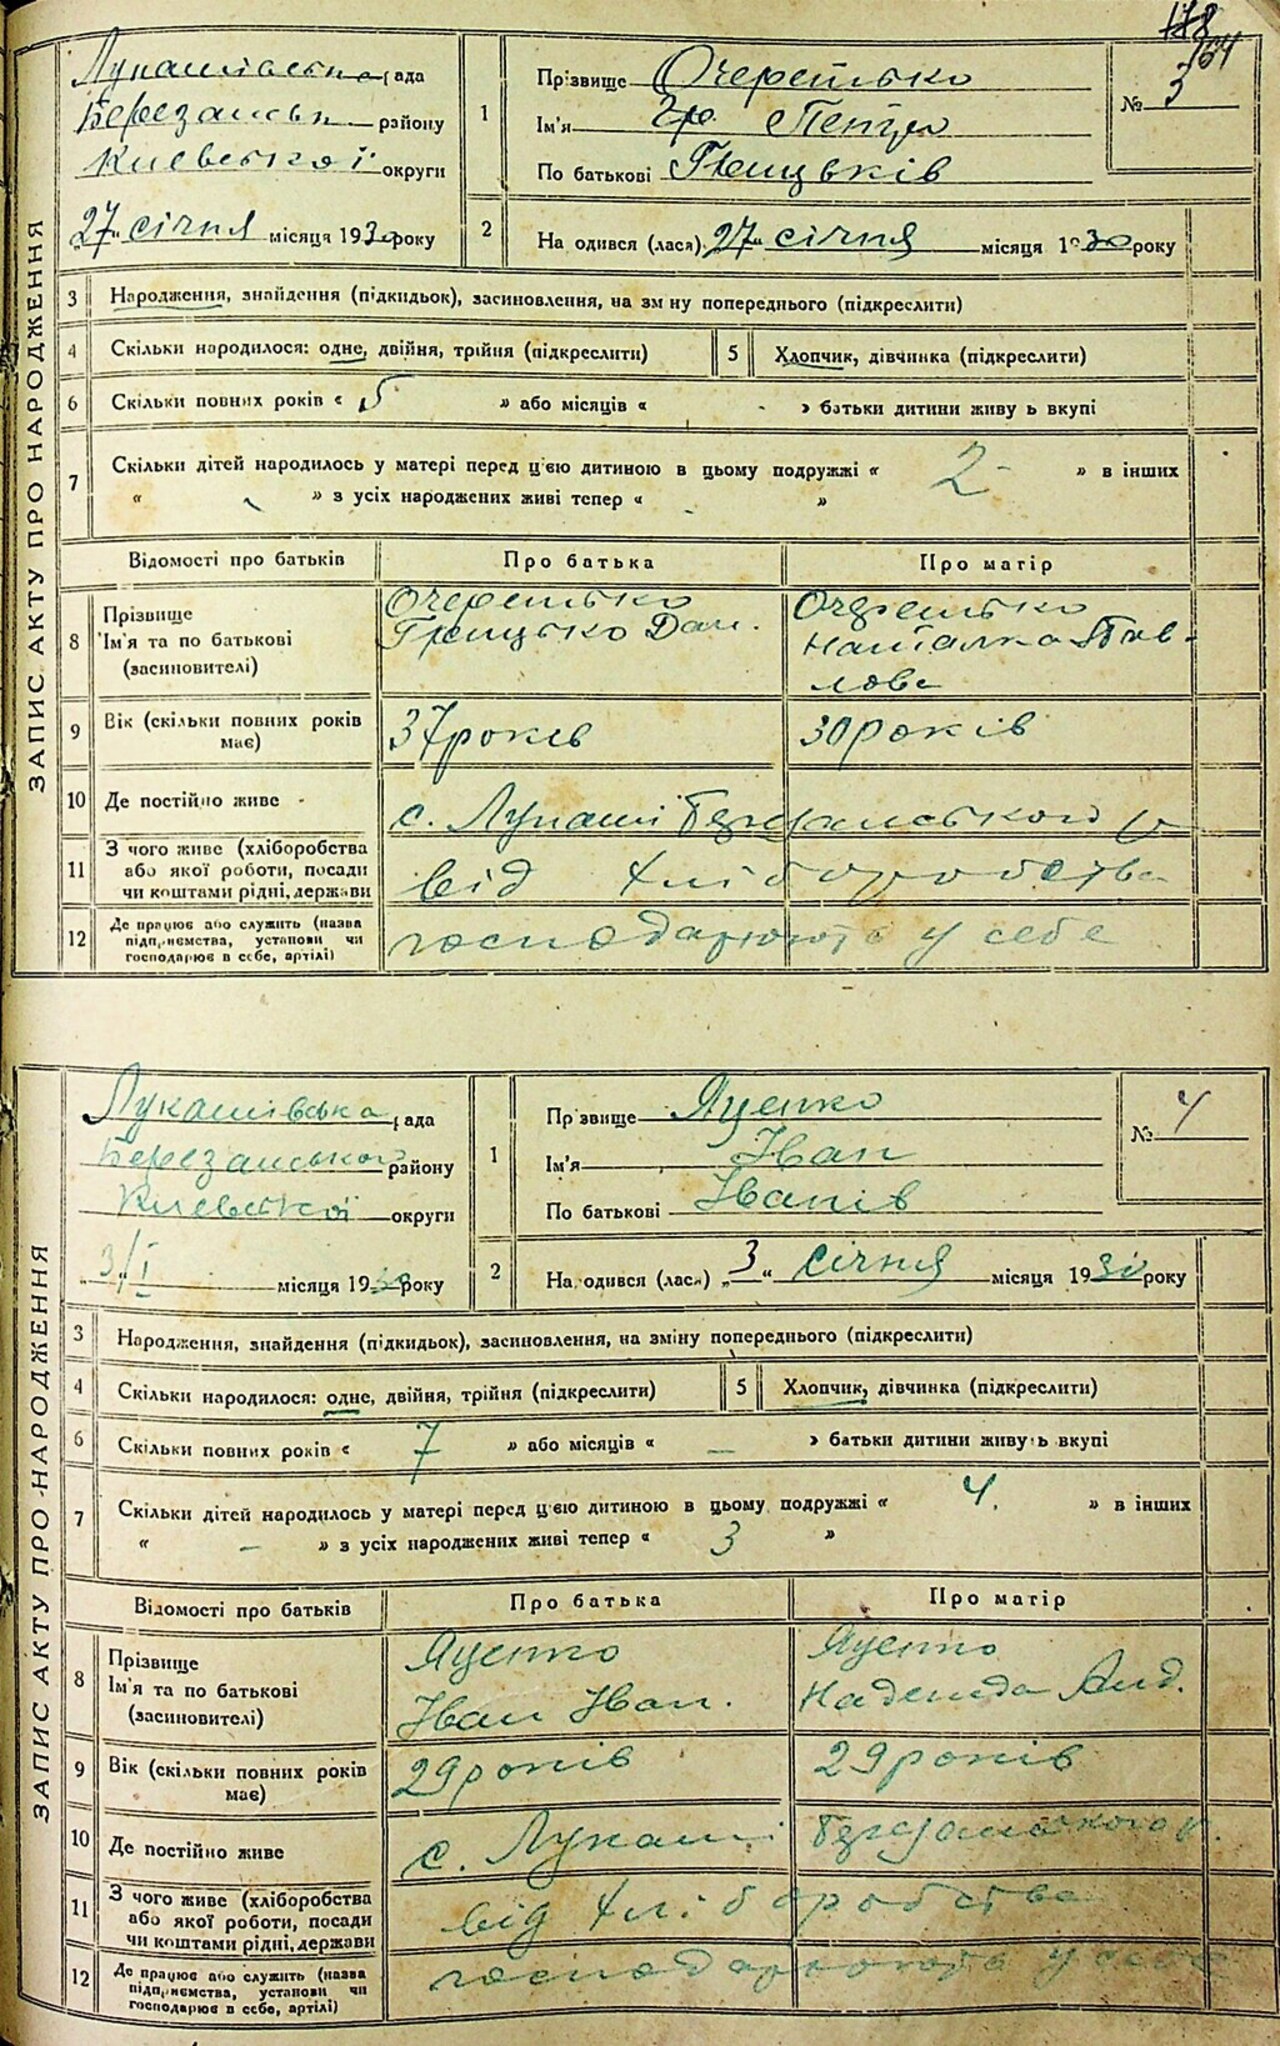 118
164
Лукашівська рада
Березанськ району
Киевської округи
„27“ січня місяця 1930 року
1
Прізвище Очеретько
Ім'я Петро
По батькові Грицьків
№ 3
2
На одився (лася) „27“ січня місяця 1930 року
ЗАПИС АКТУ ПРО НАРОДЖЕННЯ
3 Народження, знайдення (підкидьок), засиновлення, на зміну попереднього (підкреслити)
4 Скільки народилося: одне, двійня, трійня (підкреслити) 5 Хлопчик, дівчинка (підкреслити)
6 Скільки повних років « 5 » або місяців « - » батьки дитини живу ь вкупі
7 Скільки дітей народилось у матері перед цією дитиною в цьому подружжі « 2 - » в інших
« - » з усіх народжених живі тепер « - »
Відомості про батьків Про батька Про матір
8 Прізвище
Ім'я та по батькові
(засиновителі)
Очеретько
Грицько Дан.
Очеретько
Наталка Пав-
лова
9 Вік (скільки повних років
має)
37 років
30 років
10 Де постійно живе с. Лукаші Березанського р
11 З чого живе (хліборобства
або якої роботи, посади
чи коштами рідні, держави
від хліборобства
12 Де працює або служить (назва
підприємства, установи чи
господарює в себе, артілі)
господарюють у себе
Лукашівська рада
Березанського району
Киевської округи
„3/I“ місяця 1930 року
1
Прізвище Яценко
Ім'я Іван
По батькові Іванів
№ 4
2
На одився (лася) „3“ січня місяця 1930 року
ЗАПИС АКТУ ПРО НАРОДЖЕННЯ
3 Народження, знайдення (підкидьок), засиновлення, на зміну попереднього (підкреслити)
4 Скільки народилося: одне, двійня, трійня (підкреслити) 5 Хлопчик, дівчинка (підкреслити)
6 Скільки повних років « 7 » або місяців « — » батьки дитини живуть вкупі
7 Скільки дітей народилось у матері перед цією дитиною в цьому подружжі « 4. » в інших
« - » з усіх народжених живі тепер « 3 »
Відомості про батьків Про батька Про матір
8 Прізвище
Ім'я та по батькові
(засиновителі)
Яценко
Іван Іван.
Яценко
Надежда Анд.
9 Вік (скільки повних років
має)
29 років
29 років
10 Де постійно живе с. Лукаші Березанського р.
11 З чого живе (хліборобства
або якої роботи, посади
чи коштами рідні, держави
від хліборобства
12 Де працює або служить (назва
підприємства, установи чи
господарює в себе, артілі)
господарюють у себе